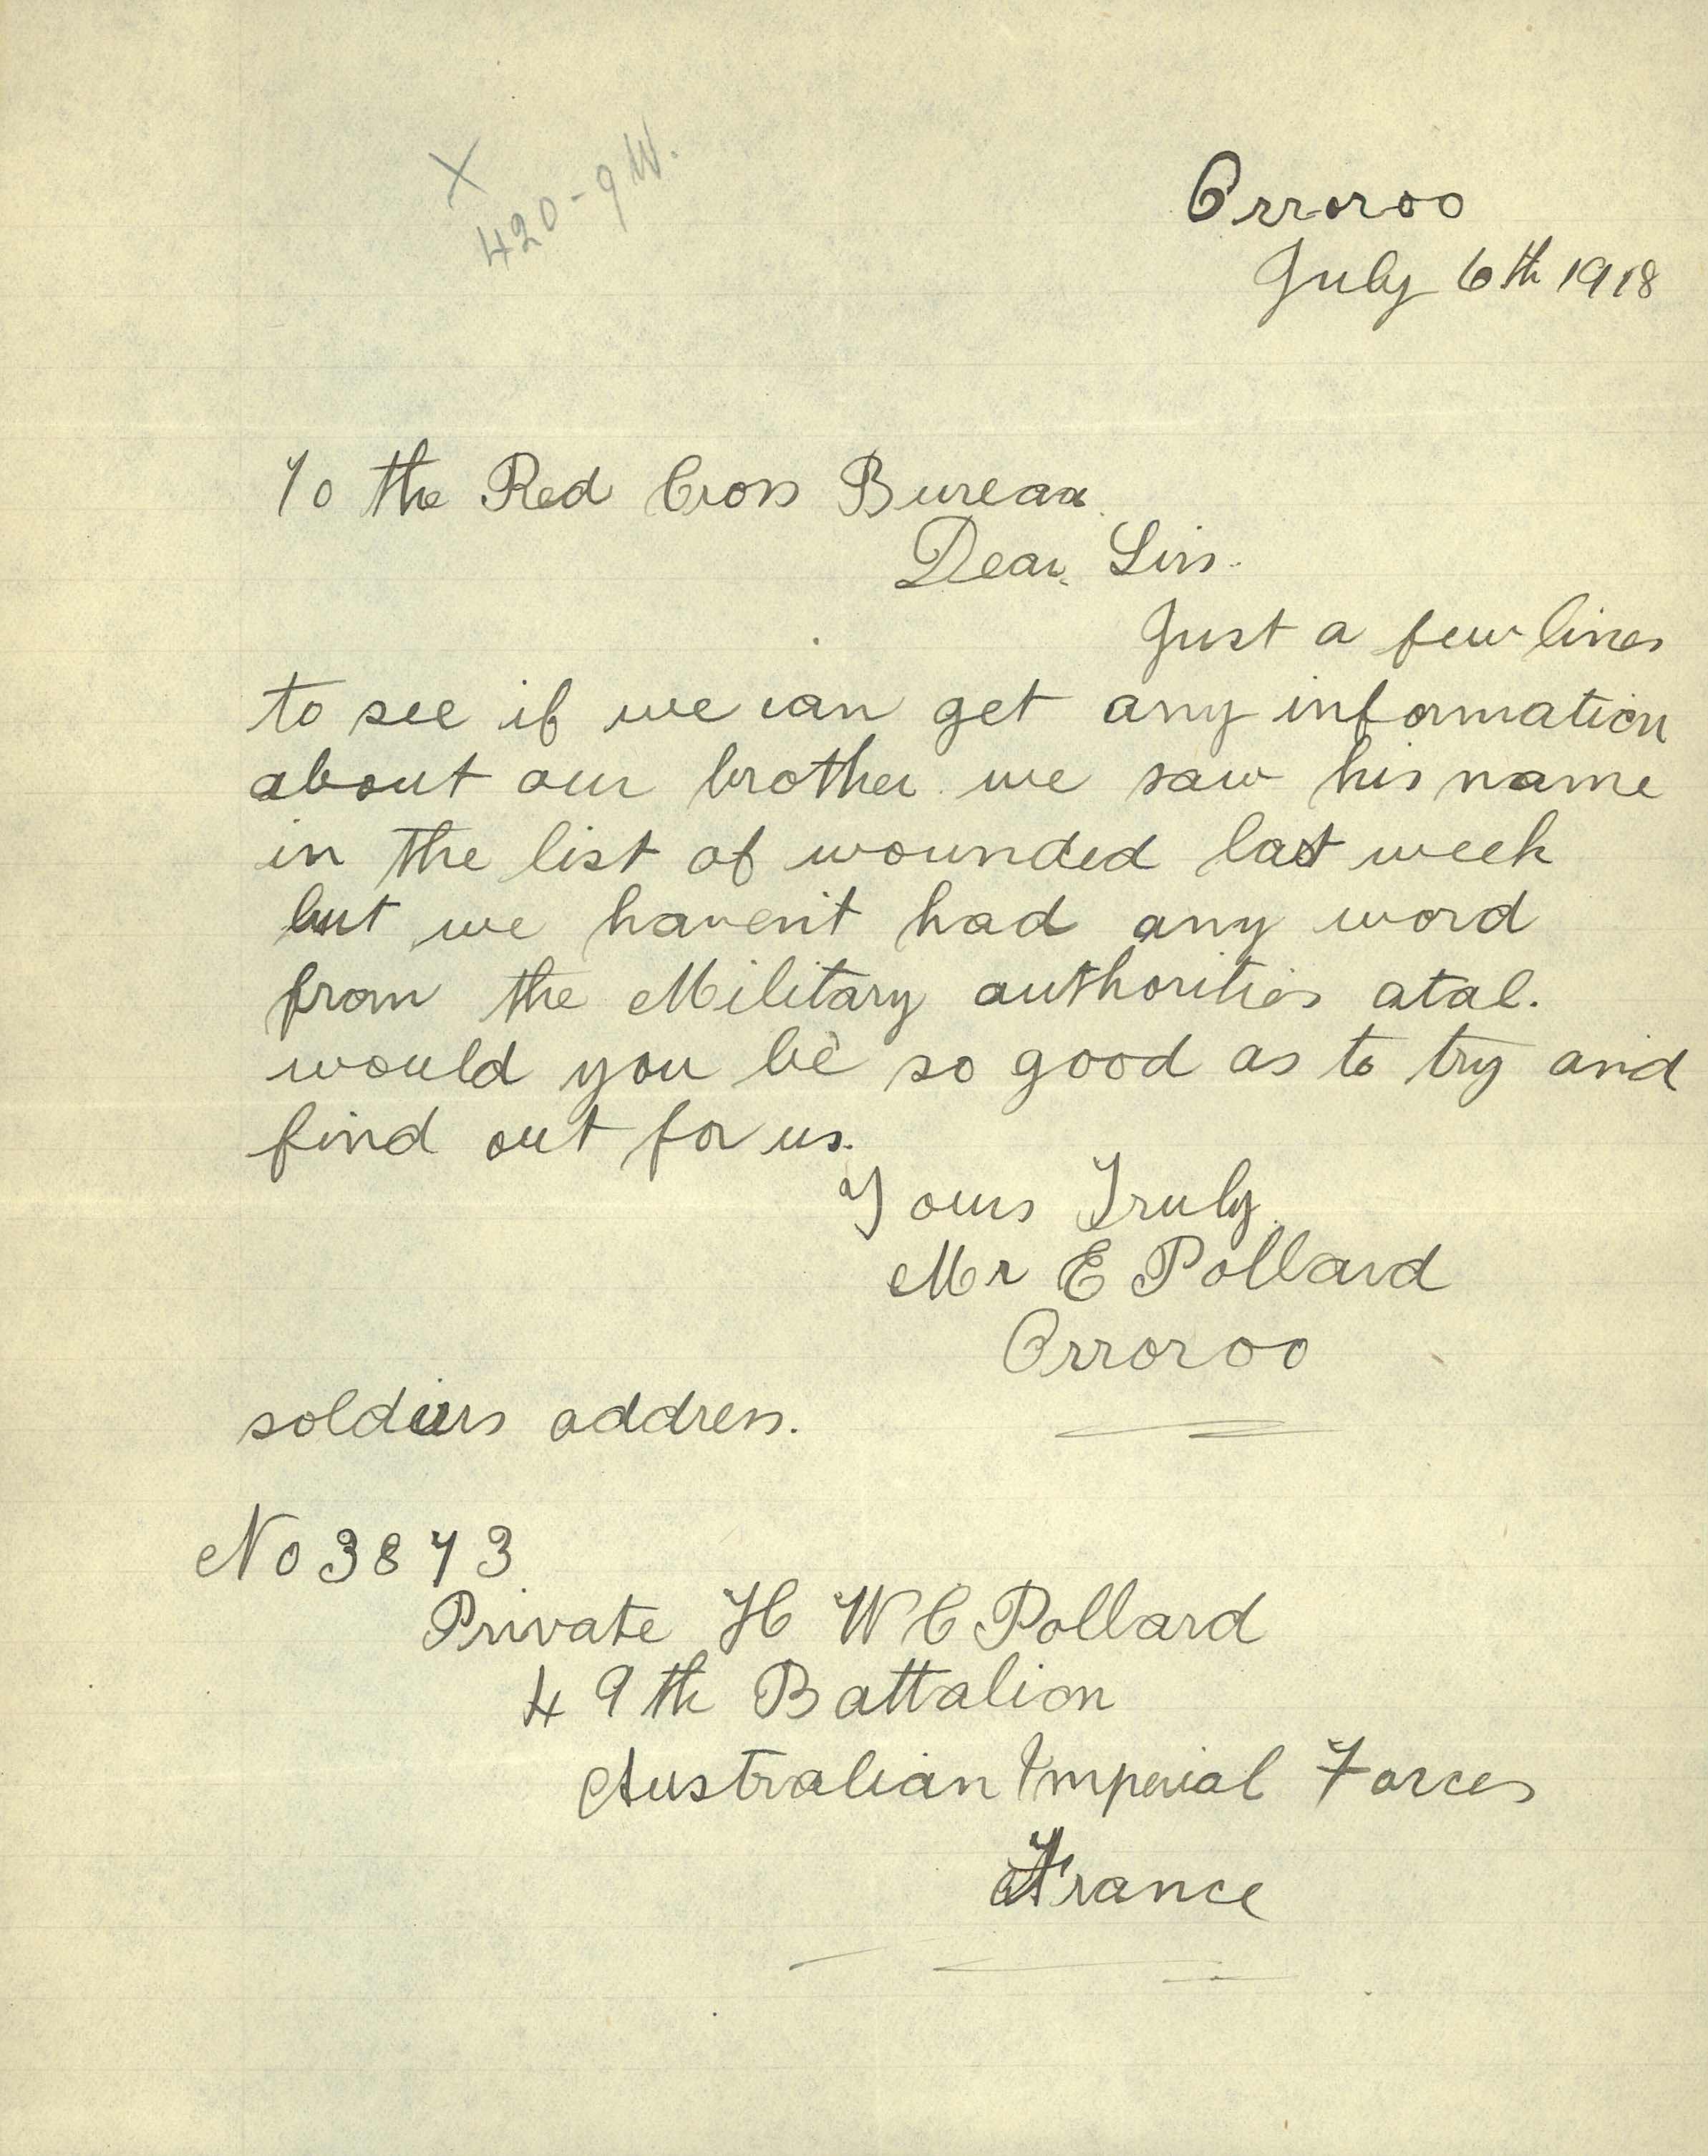 X
420-9W.
Orroroo
July 6th 1918
To the Red Cross Bureau
Dear Sirs.
Just a few lines
to see if we can get any information
about our brother we saw his name
in the list of wounded last week
but we haven't had any word
from the Military authorities atal.
would you be so good as to try and
find out for us.
Yours Truly
Mr E Pollard
Orroroo
soldiers address.
No 3873
Private H W C Pollard
49th Battalion
Australian Imperial Forces
France